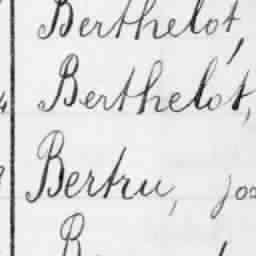 Berthelot,
Berthelot,
Bertru, Jos